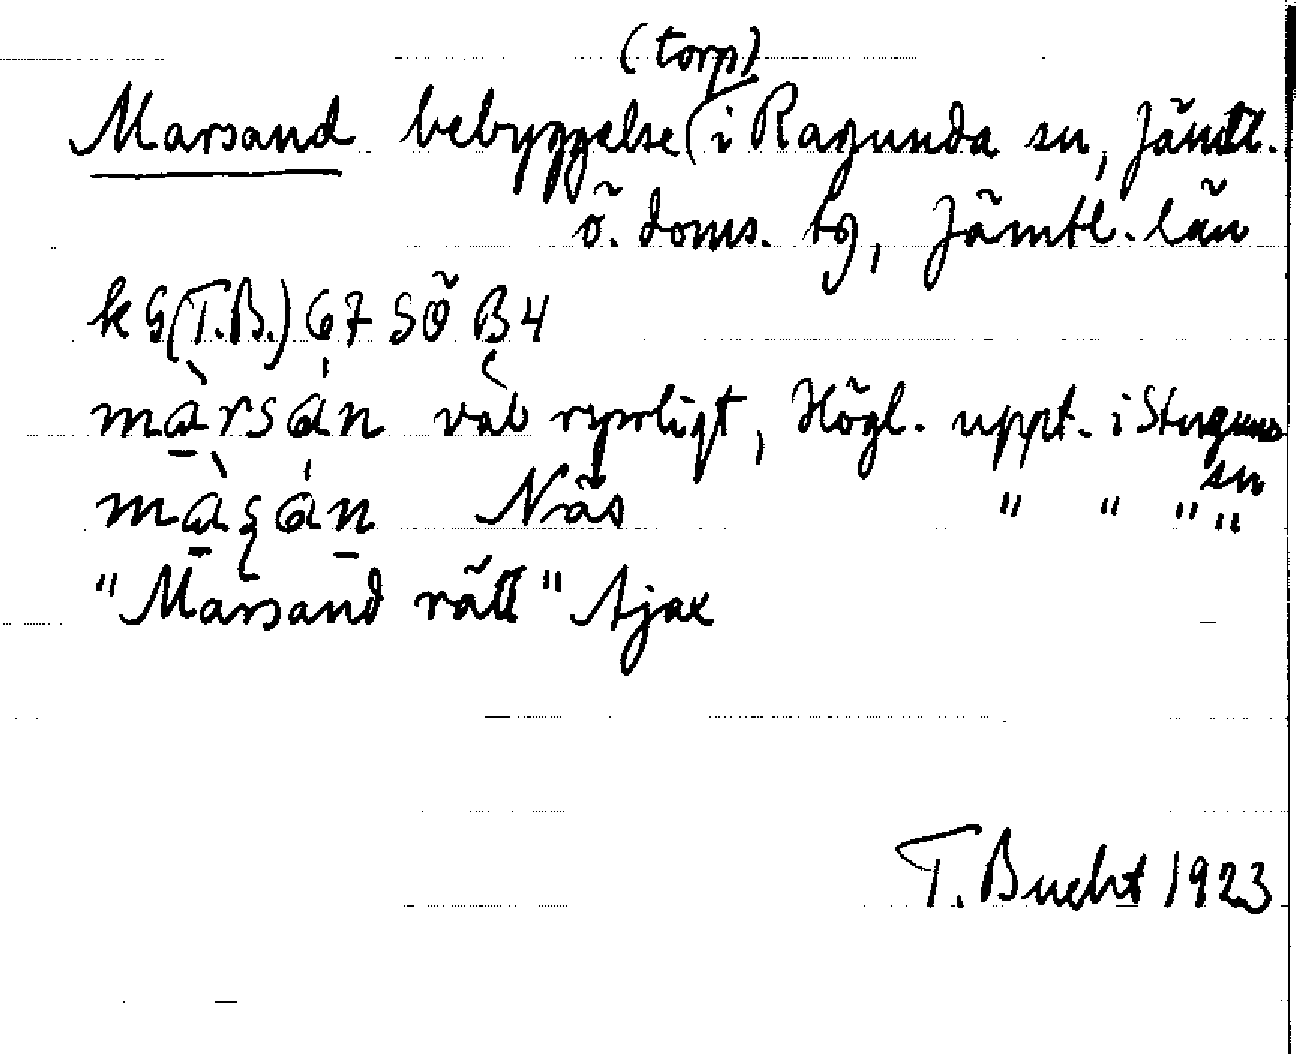 (torp)
Marsand bebyggelse i Ragunda sn, Jämtl.
ö. doms. tg, Jämtl. län
k G (T.B.) 67 SÖ B4
màrsán rymligt, Högl. uppt. i Stuguns
sn
Näs " " " "
"Marsand rätt" Ajax
T. Bucht 1923